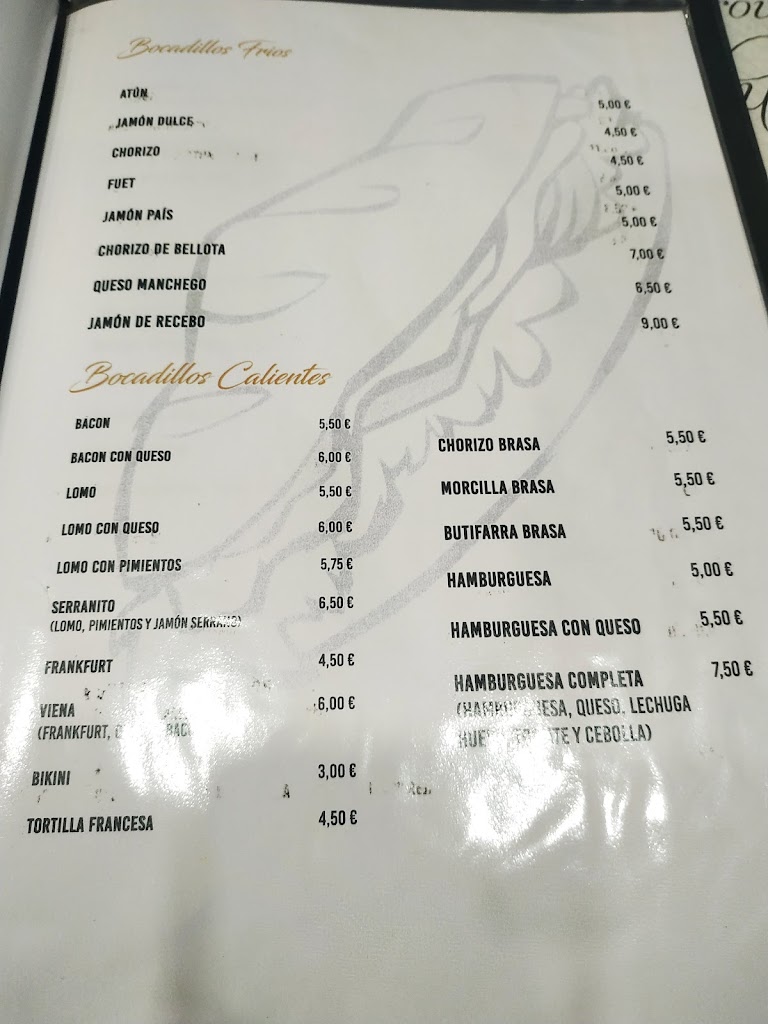 Bocadillos Frios
ATÚN 5,00 €
JAMÓN DULCE 4,50 €
CHORIZO 4,50 €
FUET 5,00 €
JAMÓN PAÍS 5,00 €
CHORIZO DE BELLOTA 7,00 €
QUESO MANCHEGO 6,50 €
JAMÓN DE RECEBO 9,00 €
Bocadillos Calientes
BACON 5,50 €
BACON CON QUESO 6,00 €
LOMO 5,50 €
LOMO CON QUESO 6,00 €
LOMO CON PIMIENTOS 5,75 €
SERRANITO 6,50 €
(LOMO, PIMIENTOS Y JAMÓN SERRANO)
FRANKFURT 4,50 €
VIENA 6,00 €
(FRANKFURT,
BIKINI 3,00 €
TORTILLA FRANCESA 4,50 €
CHORIZO BRASA 5,50 €
MORCILLA BRASA 5,50 €
BUTIFARRA BRASA 5,50 €
HAMBURGUESA 5,00 €
HAMBURGUESA CON QUESO 5,50 €
HAMBURGUESA COMPLETA 7,50 €
(HAMBURGUESA, QUESO, LECHUGA
Y CEBOLLA)